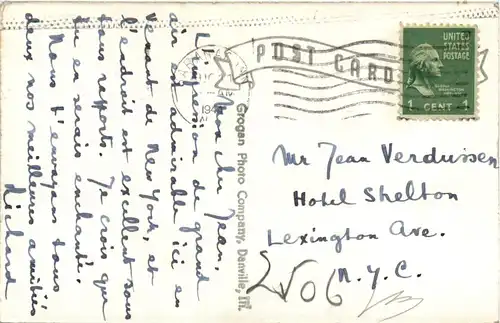 Mon cher Jean,
L'impression de grand
air est admirable ici en
venant de New York, et
l'endroit est excellent sous
tous rapports. Je crois que
tu en serais enchanté.
Nous t'envoyons tous
deux nos meilleures amitiés
Richard
Grogan Photo Company, Danville, Ill.
POST CARD
UNITED
STATES
POSTAGE
1 CENT 1
Mr Jean Verdussen
Hotel Shelton
Lexington Ave.
N.Y.C.
2506